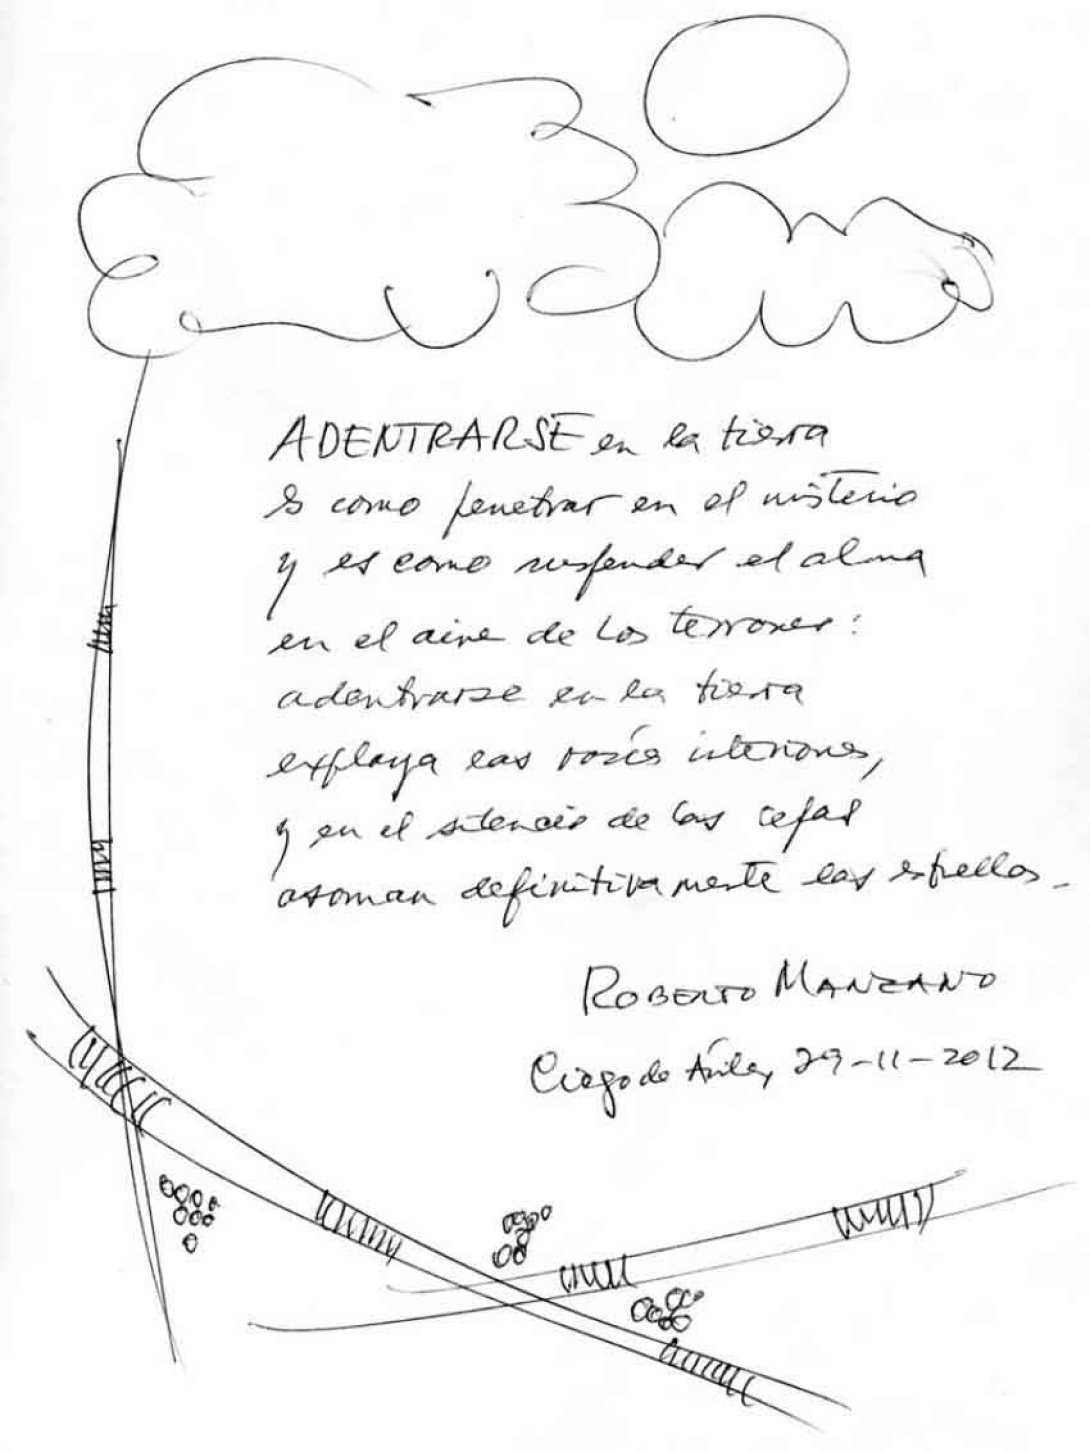 ADENTRARSE en la tierra
es como penetrar en el misterio
y es como suspender el alma
en el aire de los terrones:
adentrarse en la tierra
explaya las voces interiores,
y en el silencio de las cepas
asoman definitivamente las estrellas.
ROBERTO MANZANO
Ciego de Ávila, 29-11-2012